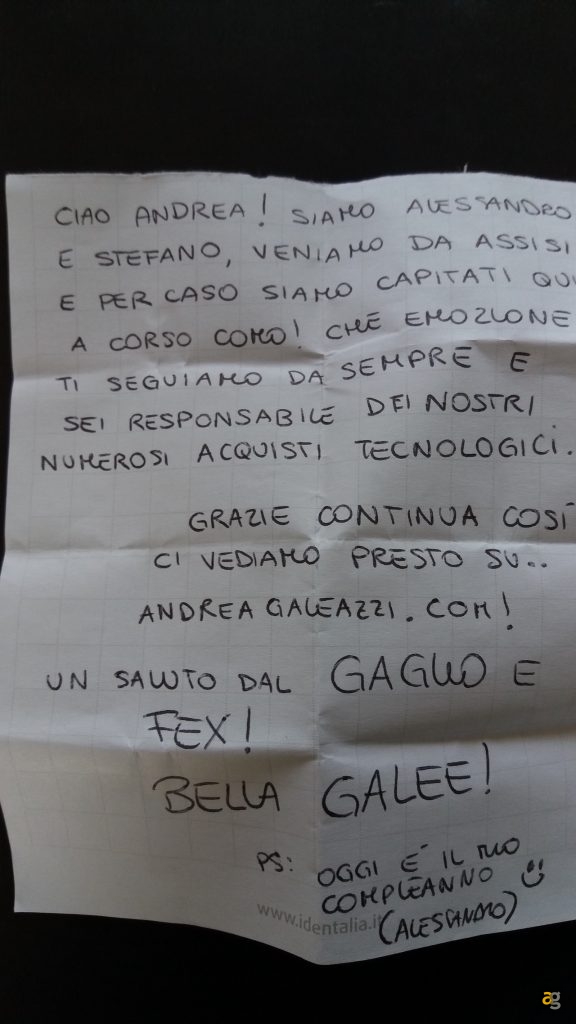 CIAO ANDREA! SIAMO ALESSANDRO
E STEFANO, VENIAMO DA ASSISI
E PER CASO SIAMO CAPITATI QUI
A CORSO COMO! CHE EMOZIONE
TI SEGUIAMO DA SEMPRE E
SEI RESPONSABILE DEI NOSTRI
NUMEROSI ACQUISTI TECNOLOGICI.
GRAZIE CONTINUA COSÌ
CI VEDIAMO PRESTO SU..
ANDREAGALEAZZI.COM!
UN SALUTO DAL GAGLIO E
FEX!
BELLA GALEE!
PS: OGGI É IL MIO
COMPLEANNO
(ALESSANDRO)
www.identalia.it
ag